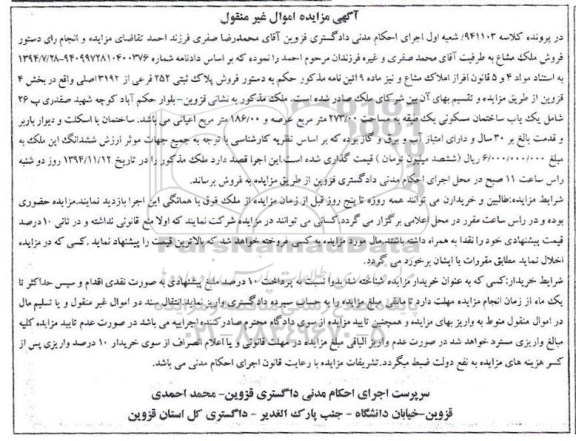 آگهی مزایده اموال غیر منقول
در پرونده کلاسه ۹۴۱۱۰۳/ شعبه اول اجرای احکام مدنی دادگستری قزوین آقای محمدرضا صفری فرزند احمد تقاضای مزایده و انجام رای دستور
فروش ملک مشاع به طرفیت آقای محمد صفری و غیره فرزندان مرحوم احمد را نموده که بر اساس دادنامه شماره ۹۴۰۹۹۷۲۸۱۰۴۰۰۳۷۶-۱۳۹۴/۷/۲۸
به استناد مواد ۴ و ۵ قانون افراز املاک مشاع و نیز ماده ۹ ائین نامه مذکور حکم به دستور فروش پلاک ثبتی ۲۵۲ فرعی از ۳۱۹۲ اصلی واقع در بخش ۴
قزوین از طریق مزایده و تقسیم بهای آن بین شرکای ملک صادر شده است. ملک مذکور به نشانی قزوین-بلوار حکم آباد کوچه شهید صفدری پ ۲۶
شامل یک باب ساختمان مسکونی یک طبقه به مساحت ۲۷۳/۰۰ متر مربع عرصه و ۱۸۶/۰۰ متر مربع اعیانی می باشد. ساختمان با اسکلت و دیوار باربر
و قدمت بالغ بر ۳۰ سال و دارای امتیاز آب و برق و گاز بوده که بر اساس نظریه کارشناسی با توجه به جمیع جهات موثر ارزش ششدانگ این ملک به
مبلغ ۶/۰۰۰/۰۰۰/۰۰۰ ریال (ششصد میلیون تومان) قیمت گذاری شده است.این اجرا قصد دارد ملک مذکور را در تاریخ ۱۳۹۴/۱۱/۱۲ روز دو شنبه
راس ساعت ۱۱ صبح در محل اجرای احکام مدنی دادگستری قزوین از طریق مزایده به فروش برساند.
شرایط مزایده:طالبین و خریدارن می توانند همه روزه تا پنج روز قبل از زمان مزایده از ملک فوق با همانگی این اجرا بازدید نمایند.مزایده حضوری
بوده و در راس ساعت مقرر در محل اعلامی برگزار می گردد.کسانی می توانند در مزایده شرکت نمایند که اولا منع قانونی نداشته و در ثانی ۱۰ درصد
قیمت پیشنهادی خود را نقدا به همراه داشته باشند.مال مورد مزایده به کسی فروخته خواهد شد که بالاترین قیمت را پیشنهاد نماید .کسی که در مزایده
اخلال نماید مطابق مقررات با ایشان برخورد می گردد.
شرایط خریدار:کسی که به عنوان خریدار مزایده شناخته شد بدوا نسبت به پرداخت ۱۰ درصد مبلغ پیشنهادی به صورت نقدی اقدام و سپس حداکثر تا
یک ماه از زمان انجام مزایده مهلت دارد تا مابقی مبلغ مزایده را به حساب سپرده دادگستری واریز نماید.انتقال سند در اموال غیر منقول و یا تسلیم مال
در اموال منقول منوط به واریز بهای مزایده و همچنین تایید مزایده از سوی دادگاه محترم صادرکننده اجراییه می باشد در صورت عدم تایید مزایده کلیه
مبالغ واریزی مسترد خواهد شد در صورت عدم واریز الباقی مبلغ مزایده در مهلت قانونی و یا اعلام انصراف از سوی خریدار ۱۰ درصد واریزی پس از
کسر هزینه های مزایده به نفع دولت ضبط میگردد.تشریفات مزایده با رعایت قانون اجرای احکام مدنی می باشد.
سرپرست اجرای احکام مدنی دادگستری قزوین- محمد احمدی
قزوین-خیابان دانشگاه - جنب پارک الغدیر - دادگستری کل استان قزوین
ParsNamadData